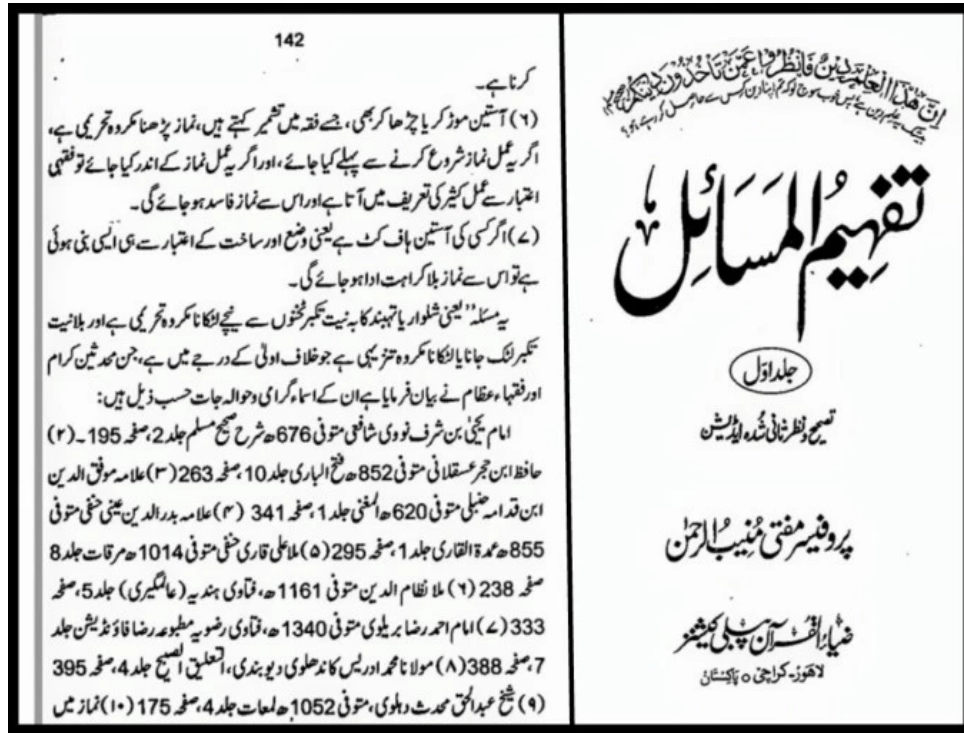 142
کرنا ہے۔
(۶) آستین موڑ کر یا چڑھا کر بھی، جسے فقہ میں تشمیر کہتے ہیں، نماز پڑھنا مکروہ تحریمی ہے،
اگر یہ عمل نماز شروع کرنے سے پہلے کیا جائے، اور اگر یہ عمل نماز کے اندر کیا جائے تو فقہی
اعتبار سے عمل کثیر کی تعریف میں آتا ہے اور اس سے نماز فاسد ہو جائے گی۔
(۷) اگر کسی کی آستین ہاف کٹ ہے یعنی وضع اور ساخت کے اعتبار سے ہی ایسی بنی ہوئی
ہے تو اس سے نماز بلا کراہت ادا ہو جائے گی۔
یہ مسئلہ "یعنی شلوار یا تہبند کا بہ نیت تکبر ٹخنوں سے نیچے لٹکانا مکروہ تحریمی ہے اور بلا نیت
تکبر لٹک جانا یا لٹکانا مکروہ تنزیہی ہے جو خلاف اولیٰ کے درجے میں ہے، جن محدثین کرام
اور فقہاء عظام نے بیان فرمایا ہے ان کے اسماء گرامی و حوالہ جات حسب ذیل ہیں:
امام یحییٰ بن شرف نووی شافعی متوفی 676ھ شرح صحیح مسلم جلد 2، صفحہ 195۔ (۲)
حافظ ابن حجر عسقلانی متوفی 852ھ فتح الباری جلد 10، صفحہ 263 (۳) علامہ موفق الدین
ابن قدامہ حنبلی متوفی 620ھ المغنی جلد 1، صفحہ 341 (۴) علامہ بدر الدین عینی حنفی متوفی
855ھ عمدۃ القاری جلد 1، صفحہ 295 (۵) ملا علی قاری حنفی متوفی 1014ھ مرقات جلد 8
صفحہ 238 (۶) ملا نظام الدین متوفی 1161ھ، فتاوی ہندیہ (عالمگیری) جلد 5، صفحہ
333 (۷) امام احمد رضا بریلوی متوفی 1340ھ، فتاوی رضویہ مطبوعہ رضا فاؤنڈیشن جلد
7، صفحہ 388 (۸) مولانا محمد ادریس کاندھلوی دیوبندی، التعلیق الصبیح جلد 4، صفحہ 395
(۹) شیخ عبدالحق محدث دہلوی، متوفی 1052ھ لمعات جلد 4، صفحہ 175 (۱۰) نماز میں
اِنَّ هٰذَا الْعِلْمَ دِيْنٌ فَانْظُرُوْا عَمَّنْ تَأْخُذُوْنَ دِيْنَكُمْ
بیشک یہ علم دین ہے، پس خوب سوچ لو کہ تم اپنا دین کس سے حاصل کر رہے ہو؟
تفہیم المسائل
جلد اوّل
تصحیح و نظر ثانی شدہ ایڈیشن
پروفیسر مفتی منیب الرحمٰن
ضیاء القرآن پبلی کیشنز
لاہور۔ کراچی ٥ پاکستان